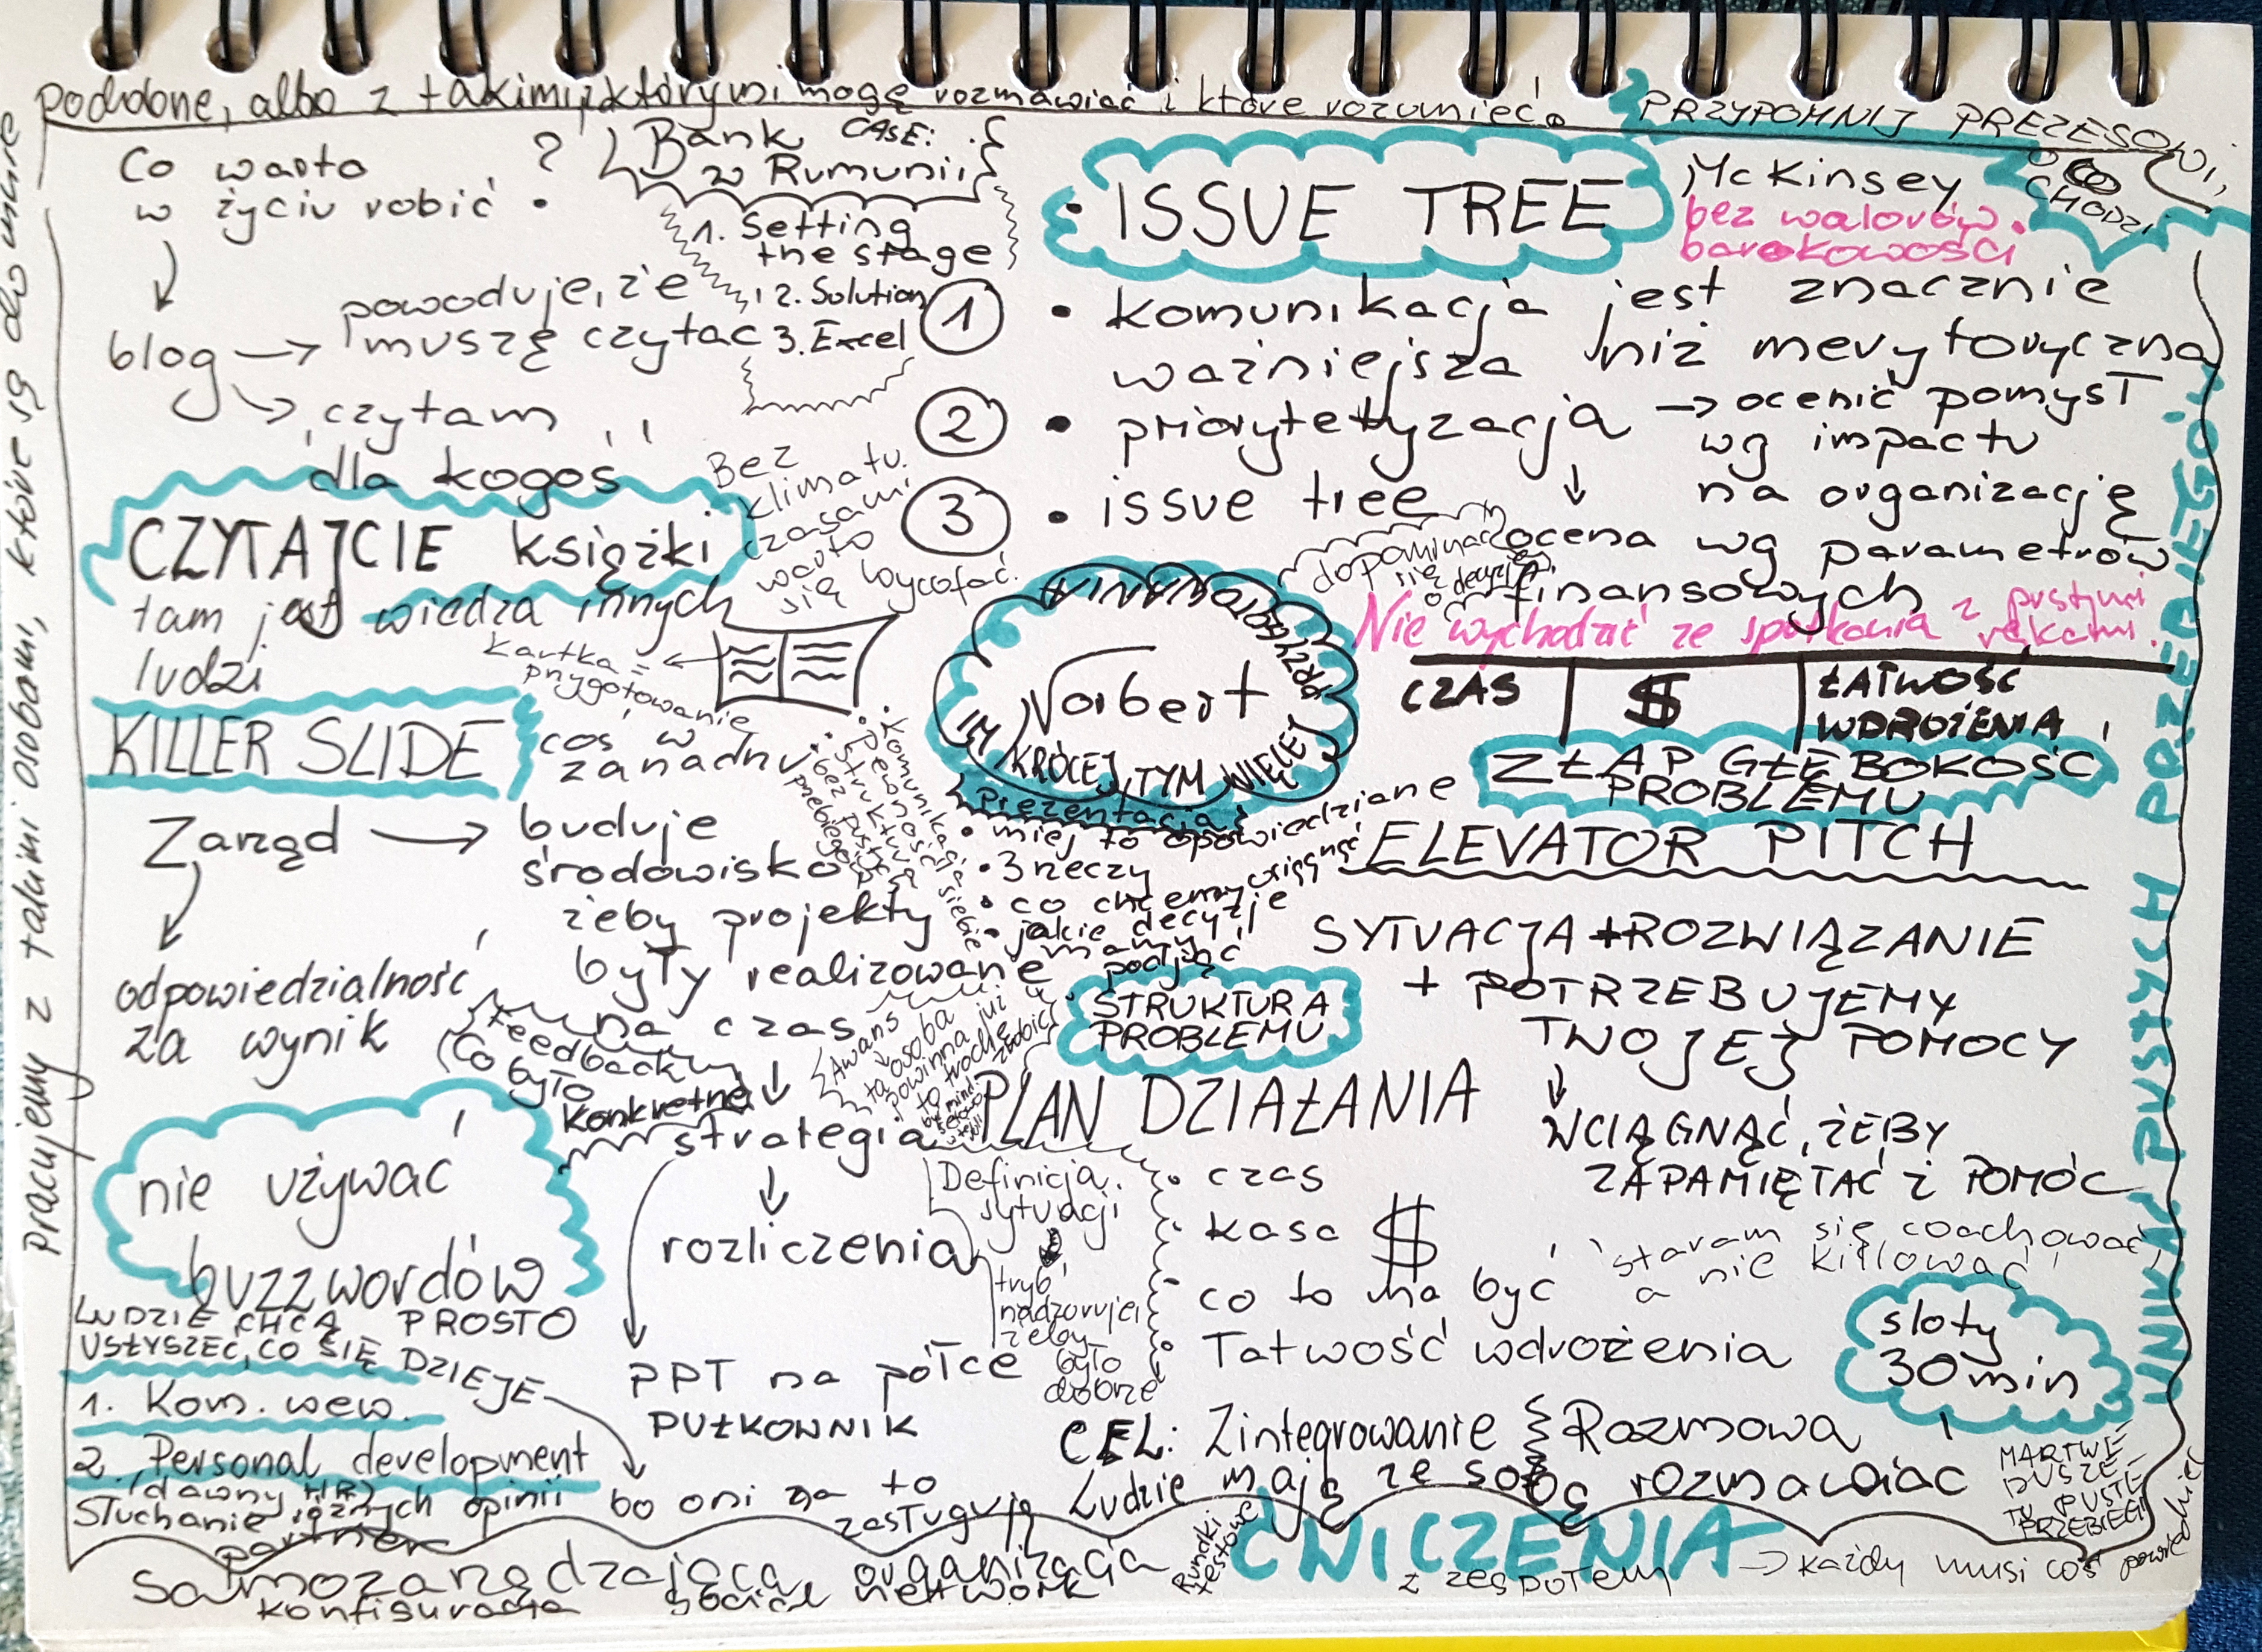 pracujemy z takimi osobami, które są do mnie
podobne, albo z takimi, z którymi mogę rozmawiać i które rozumieć.
PRZYPOMNIJ PREZESOWI,
O CO
CHODZI
Co warto
w życiu robić ?
blog → powoduje, że
muszę czytać
czytam
dla kogoś
CASE:
Bank
w Rumunii
1. Setting
the stage
2. Solution
3. Excel
CZYTAJCIE książki
tam jest wiedza innych
ludzi
Bez
klimatu.
czasami
warto
się wycofać.
Kartka =
przygotowanie
KILLER SLIDE
coś w
zanadrzu
Zarząd → buduje
środowisko
żeby projekty
były realizowane
na czas
odpowiedzialność
za wynik
feedback
(Co było
konkretne
strategia
rozliczenia
PPT na półce
PUŁKOWNIK
nie używać
buzzwordów
LUDZIE CHCĄ PROSTO
USŁYSZEĆ, CO SIĘ DZIEJE
1. Kom. wew.
2. Personal development
(dawny HR)
Słuchanie różnych opinii
partner
bo oni na to
zasługują
samozarządzająca organizacja
konfiguracja social network
ISSUE TREE
McKinsey
bez walorów
barokowości
1 • komunikacja jest znacznie
ważniejsza niż merytoryczna
2 • priorytetyzacja → ocenić pomysł
wg impactu
na organizację
3 • issue tree
ocena wg parametrów
finansowych
dopominać
się o decyzję
Nie wychodzić ze spotkania z pustymi
rękami.
CZAS
$
ŁATWOŚĆ
WDROŻENIA
Norbert
PRZYGOTOWANIA
IM KRÓCEJ, TYM WIĘCEJ
Prezentacja
• miej to opowiedziane
• 3 rzeczy
• co chcemy osiągnąć
• jakie decyzje
mamy
podjąć
• komunikacja
• pewność siebie
• struktura
• bez pustych
przebiegów
ZŁAP GŁĘBOKOŚĆ
PROBLEMU
ELEVATOR PITCH
SYTUACJA + ROZWIĄZANIE
+ POTRZEBUJEMY
TWOJEJ POMOCY
WCIĄGNĄĆ, ŻEBY
ZAPAMIĘTAĆ i POMÓC
STRUKTURA
PROBLEMU
Awans
ta osoba
powinna już
to trochę
robić
PLAN DZIAŁANIA
• czas
• kasa $
• co to ma być
• łatwość wdrożenia
Definicja
sytuacji
tryb
nadzoruje,
żeby
było
dobrze
staram się coachować,
a nie killować
sloty
30 min
CEL: Zintegrowanie
Rozmowa
Ludzie mają ze sobą rozmawiać
MARTWE
DUSZE
TU PUSTE
PRZEBIEGI
Rundki
testowe
ĆWICZENIA
z zespołem → każdy musi coś powiedzieć
UNIKAJ PUSTYCH PRZEBIEGÓW